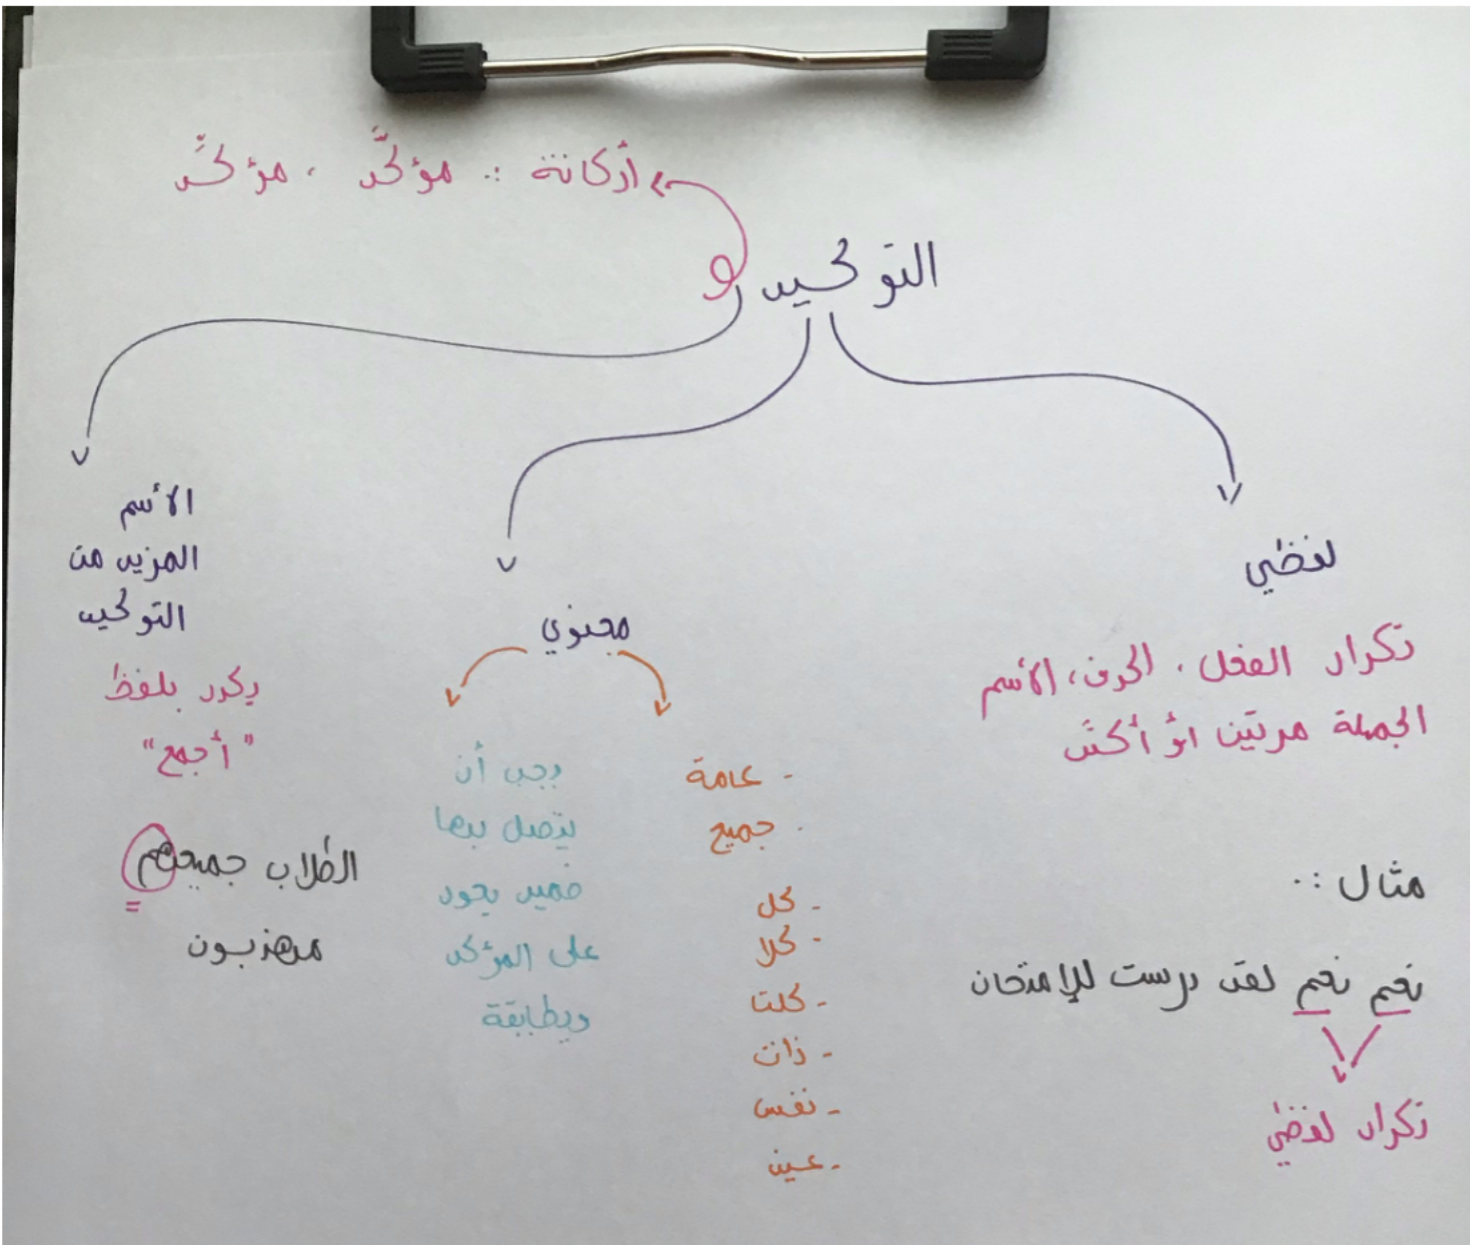 أركانة :. مؤكَّد ، مؤكِّد
التوكيد
لفظي
تكرار الفعل ، الحرف ، الأسم
الجملة مرتين أو أكثر
مثال :.
نعم نعم لقد درست للإمتحان
تكرار لفظي
معنوي
- عامة
- جميع
- كل
- كلا
- كلتا
- ذات
- نفس
- عين
وجب أن
يتصل بها
ضمير يعود
على المؤكد
ويطابقة
الأسم
المزيد من
التوكيد
يكرر بلفظ
"أجمع"
الطلاب جميعهم
مهذبون